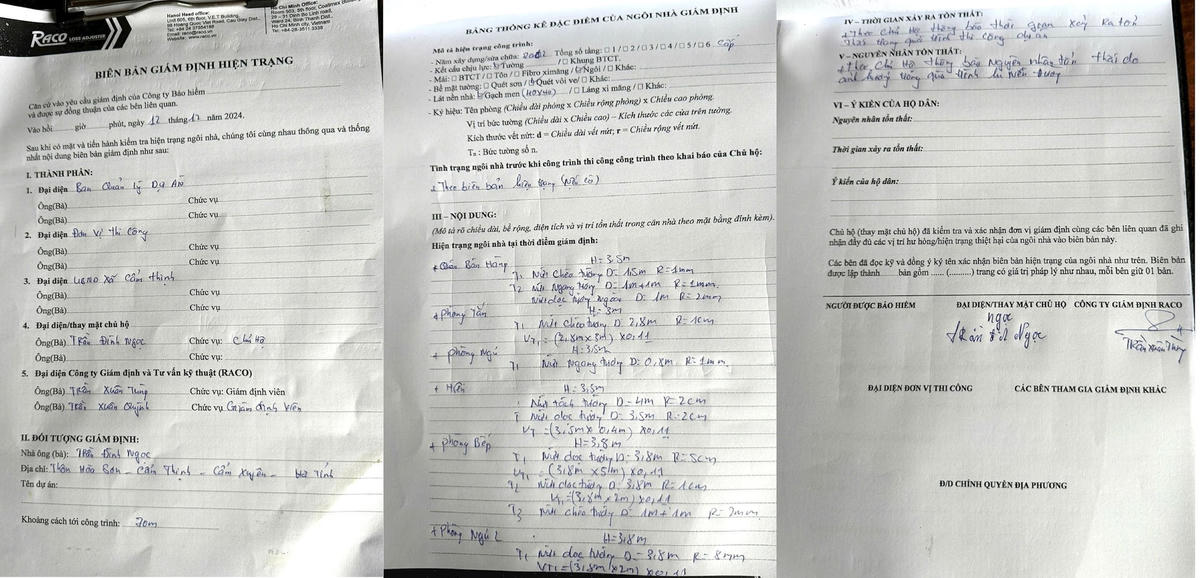 RACO LOSS ADJUSTER
Hanoi Head office:
Unit 605, 6th floor, V.E.T Building,
98 Hoang Quoc Viet Street, Cau Giay Dist.,
Ha Noi City, Vietnam
Website: www.raco.vn
Ho Chi Minh Office:
Room 503, 5th floor,
29 – 31 Dinh Bo Linh road,
Ward 24, Binh Thanh Dist.,
Ho Chi Minh city, Vietnam
Tel: +84-28-3511 3338
BIÊN BẢN GIÁM ĐỊNH HIỆN TRẠNG
Căn cứ vào yêu cầu giám định của Công ty Bảo hiểm
và được sự đồng thuận của các bên liên quan.
Vào hồi giờ phút, ngày 12 tháng 12 năm 2024.
Sau khi có mặt và tiến hành kiểm tra hiện trạng ngôi nhà, chúng tôi cùng nhau thông qua và thống
nhất nội dung biên bản giám định như sau:
I. THÀNH PHẦN:
1. Đại diện Ban Quản Lý Dự ÁN
Ông(Bà) Chức vụ
Ông(Bà) Chức vụ
2. Đại diện Đơn Vị Thi Công
Ông(Bà) Chức vụ
Ông(Bà) Chức vụ
3. Đại diện UBND Xã Cẩm Thịnh
Ông(Bà) Chức vụ
Ông(Bà) Chức vụ
4. Đại diện/thay mặt chủ hộ
Ông(Bà) Trần Đình Ngọc Chức vụ: Chủ Hộ
Ông(Bà) Chức vụ:
5. Đại diện Công ty Giám định và Tư vấn kỹ thuật (RACO)
Ông(Bà) Trần Xuân Tùng Chức vụ: Giám định viên
Ông(Bà) Trần Xuân Quỳnh Chức vụ Giám định viên
II. ĐỐI TƯỢNG GIÁM ĐỊNH:
Nhà ông (bà): Trần Đình Ngọc
Địa chỉ: Thôn Hòa Sơn – Cẩm Thịnh – Cẩm Xuyên – Hà Tĩnh
Tên dự án:
Khoảng cách tới công trình: 70m
BẢNG THỐNG KÊ ĐẶC ĐIỂM CỦA NGÔI NHÀ GIÁM ĐỊNH
Mô tả hiện trạng công trình:
- Năm xây dựng/sửa chữa: 2002 Tổng số tầng: □ 1 / □ 2 / □ 3 / □ 4 / □ 5 / □ 6 Cấp
- Kết cấu chịu lực: ☑ Tường / □ Khung BTCT.
- Mái: □ BTCT / □ Tôn / □ Fibro ximăng / ☑ Ngói / □ Khác:
- Bề mặt tường: □ Quét sơn / ☑ Quét vôi ve/ □ Khác:
- Lát nền nhà: ☑ Gạch men (40x40) / □ Láng xi măng / □ Khác:
- Ký hiệu: Tên phòng (Chiều dài phòng x Chiều rộng phòng) x Chiều cao phòng.
Vị trí bức tường (Chiều dài x Chiều cao) – Kích thước các cửa trên tường.
Kích thước vết nứt: d = Chiều dài vết nứt; r = Chiều rộng vết nứt.
Tn : Bức tường số n.
Tình trạng ngôi nhà trước khi công trình thi công công trình theo khai báo của Chủ hộ:
+ Theo biên bản hiện trạng (nếu có)
III – NỘI DUNG:
(Mô tả rõ chiều dài, bề rộng, diện tích và vị trí tổn thất trong căn nhà theo mặt bằng đính kèm).
Hiện trạng ngôi nhà tại thời điểm giám định:
+ Quán Bán Hàng H = 3.5m
T1 Nứt chéo tường D = 1,5m R = 1mm
T2 Nứt Ngang tường D = 1m+1m R = 1mm.
Nứt dọc tường ngoài D = 1m R = 2mm
+ Phòng Tắm H = 3m
T1 Nứt chéo tường D: 2,8m R = 1cm
VT1 = (2.8m x 3m) x 0,11
+ Phòng Ngủ H = 3,5m
T1 Nứt Ngang tường D: 0,8m R = 1mm
+ Hiên H = 3,5m
Nứt tách tường D = 4m R = 2cm
T Nứt dọc tường D = 3,5m R = 2cm
VT = (3,5m x 0,4m) x 0,11
+ Phòng Bếp H = 3,8m
T1 Nứt dọc tường D = 3,8m R = 5cm
VT1 = (3,8m x 5m) x 0,11
T2 Nứt dọc tường D = 3,8m R = 1cm
VT = (3,8m x 2m) x 0,11
T3 Nứt chéo tường D = 1m + 1m R = 2mm.
+ Phòng Ngủ 2 H = 3,8m
T1 Nứt dọc tường D = 3,8m R = 8mm
VT1 = (3,8m x 2m) x 0,11
IV – THỜI GIAN XẢY RA TỔN THẤT:
+ Theo Chủ Hộ thông báo thời gian xảy ra tổn
thất trong quá trình thi công dự án
V – NGUYÊN NHÂN TỔN THẤT:
+ Theo Chủ Hộ thông báo Nguyên nhân tổn thất do
ảnh hưởng trong quá trình lu nền đường
VI – Ý KIẾN CỦA HỘ DÂN:
Nguyên nhân tổn thất:
Thời gian xảy ra tổn thất:
Ý kiến của hộ dân:
Chủ hộ (thay mặt chủ hộ) đã kiểm tra và xác nhận đơn vị giám định cùng các bên liên quan đã ghi
nhận đầy đủ các vị trí hư hỏng/hiện trạng thiệt hại của ngôi nhà vào biên bản này.
Các bên đã đọc kỹ và đồng ý ký tên xác nhận biên bản hiện trạng của ngôi nhà như trên. Biên bản
được lập thành bản gồm ...... (.........) trang có giá trị pháp lý như nhau, mỗi bên giữ 01 bản.
NGƯỜI ĐƯỢC BẢO HIỂM ĐẠI DIỆN/THAY MẶT CHỦ HỘ CÔNG TY GIÁM ĐỊNH RACO
ngọc
Trần đình Ngọc
Trần Xuân Tùng
ĐẠI DIỆN ĐƠN VỊ THI CÔNG CÁC BÊN THAM GIA GIÁM ĐỊNH KHÁC
Đ/D CHÍNH QUYỀN ĐỊA PHƯƠNG